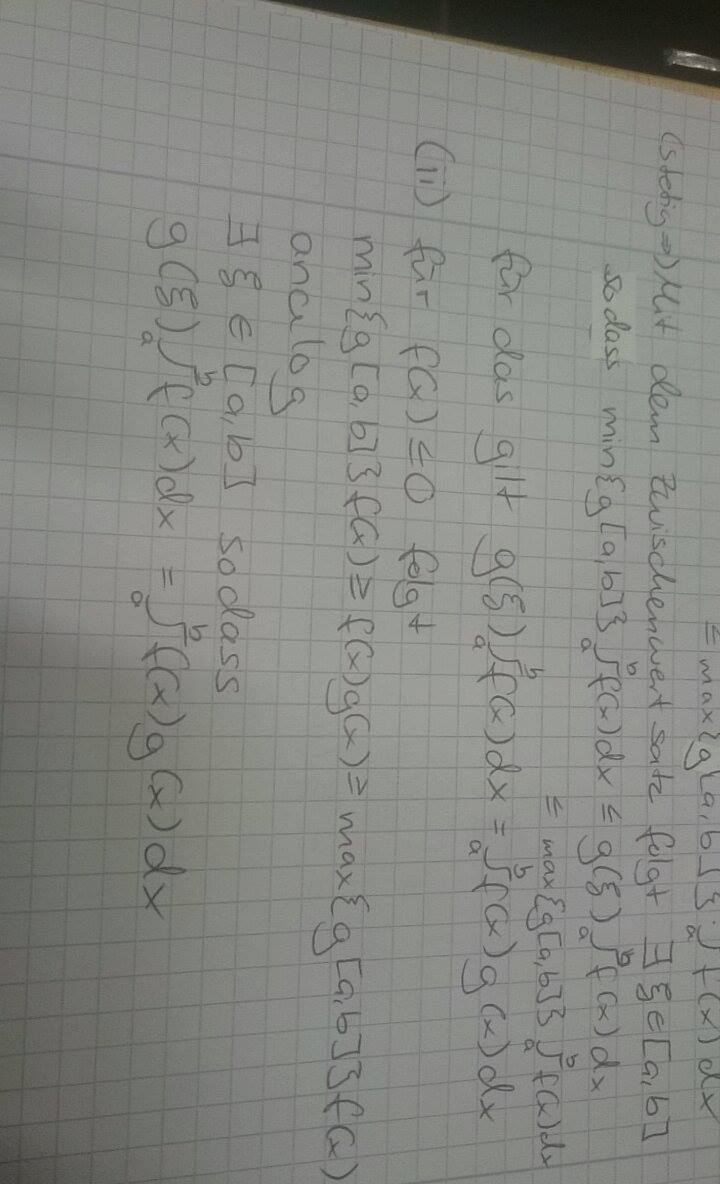 ≤ max{g[a,b]}·ₐ∫ f(x)dx
(stetig⇒) Mit dem Zwischenwertsatz folgt ∃ ξ ∈ [a,b]
sodass min{g[a,b]} ₐ∫ᵇ f(x)dx ≤ g(ξ) ₐ∫ᵇ f(x)dx
≤ max{g[a,b]} ₐ∫ᵇ f(x)dx
für das gilt g(ξ) ₐ∫ᵇ f(x)dx = ₐ∫ᵇ f(x)g(x)dx
(ii) für f(x) ≤ 0 folgt
min{g[a,b]}f(x) ≥ f(x)g(x) ≥ max{g[a,b]}f(x)
analog
∃ ξ ∈ [a,b] sodass
g(ξ) ₐ∫ᵇ f(x)dx = ₐ∫ᵇ f(x)g(x)dx